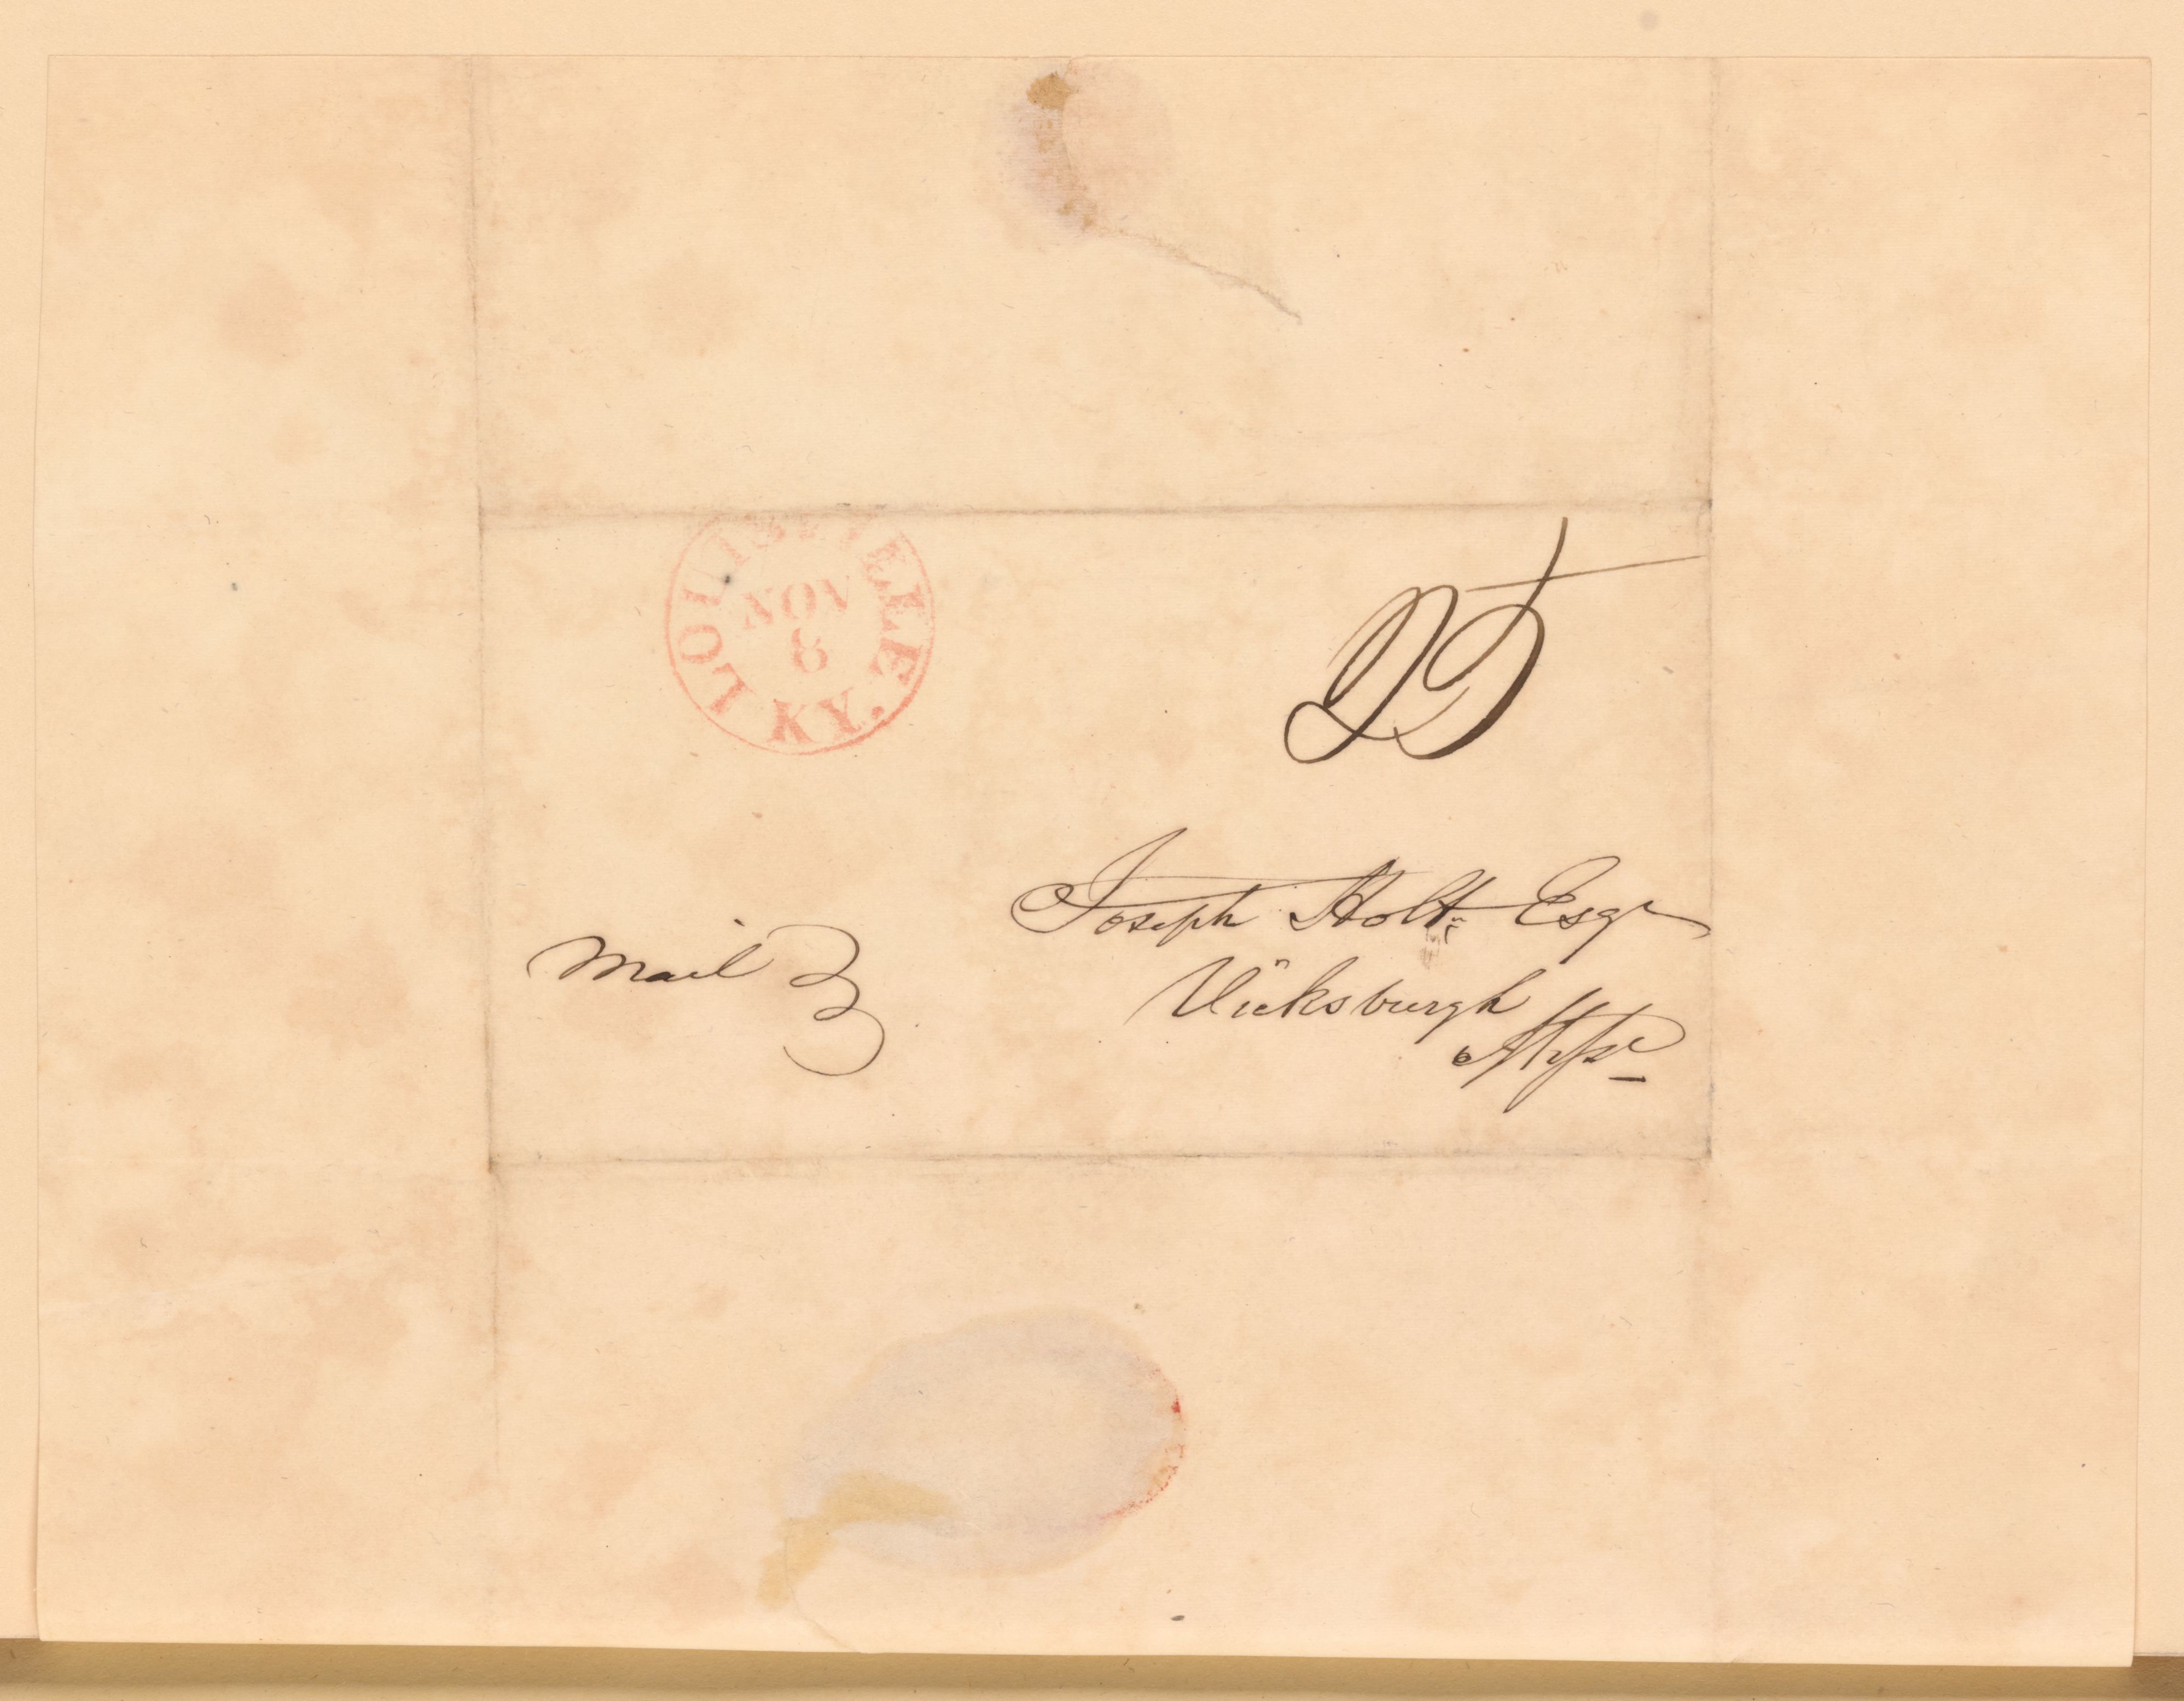 LOUISVILLE KY.
NOV
8
25
Joseph Holt Esqr
Mail
Vicksburgh